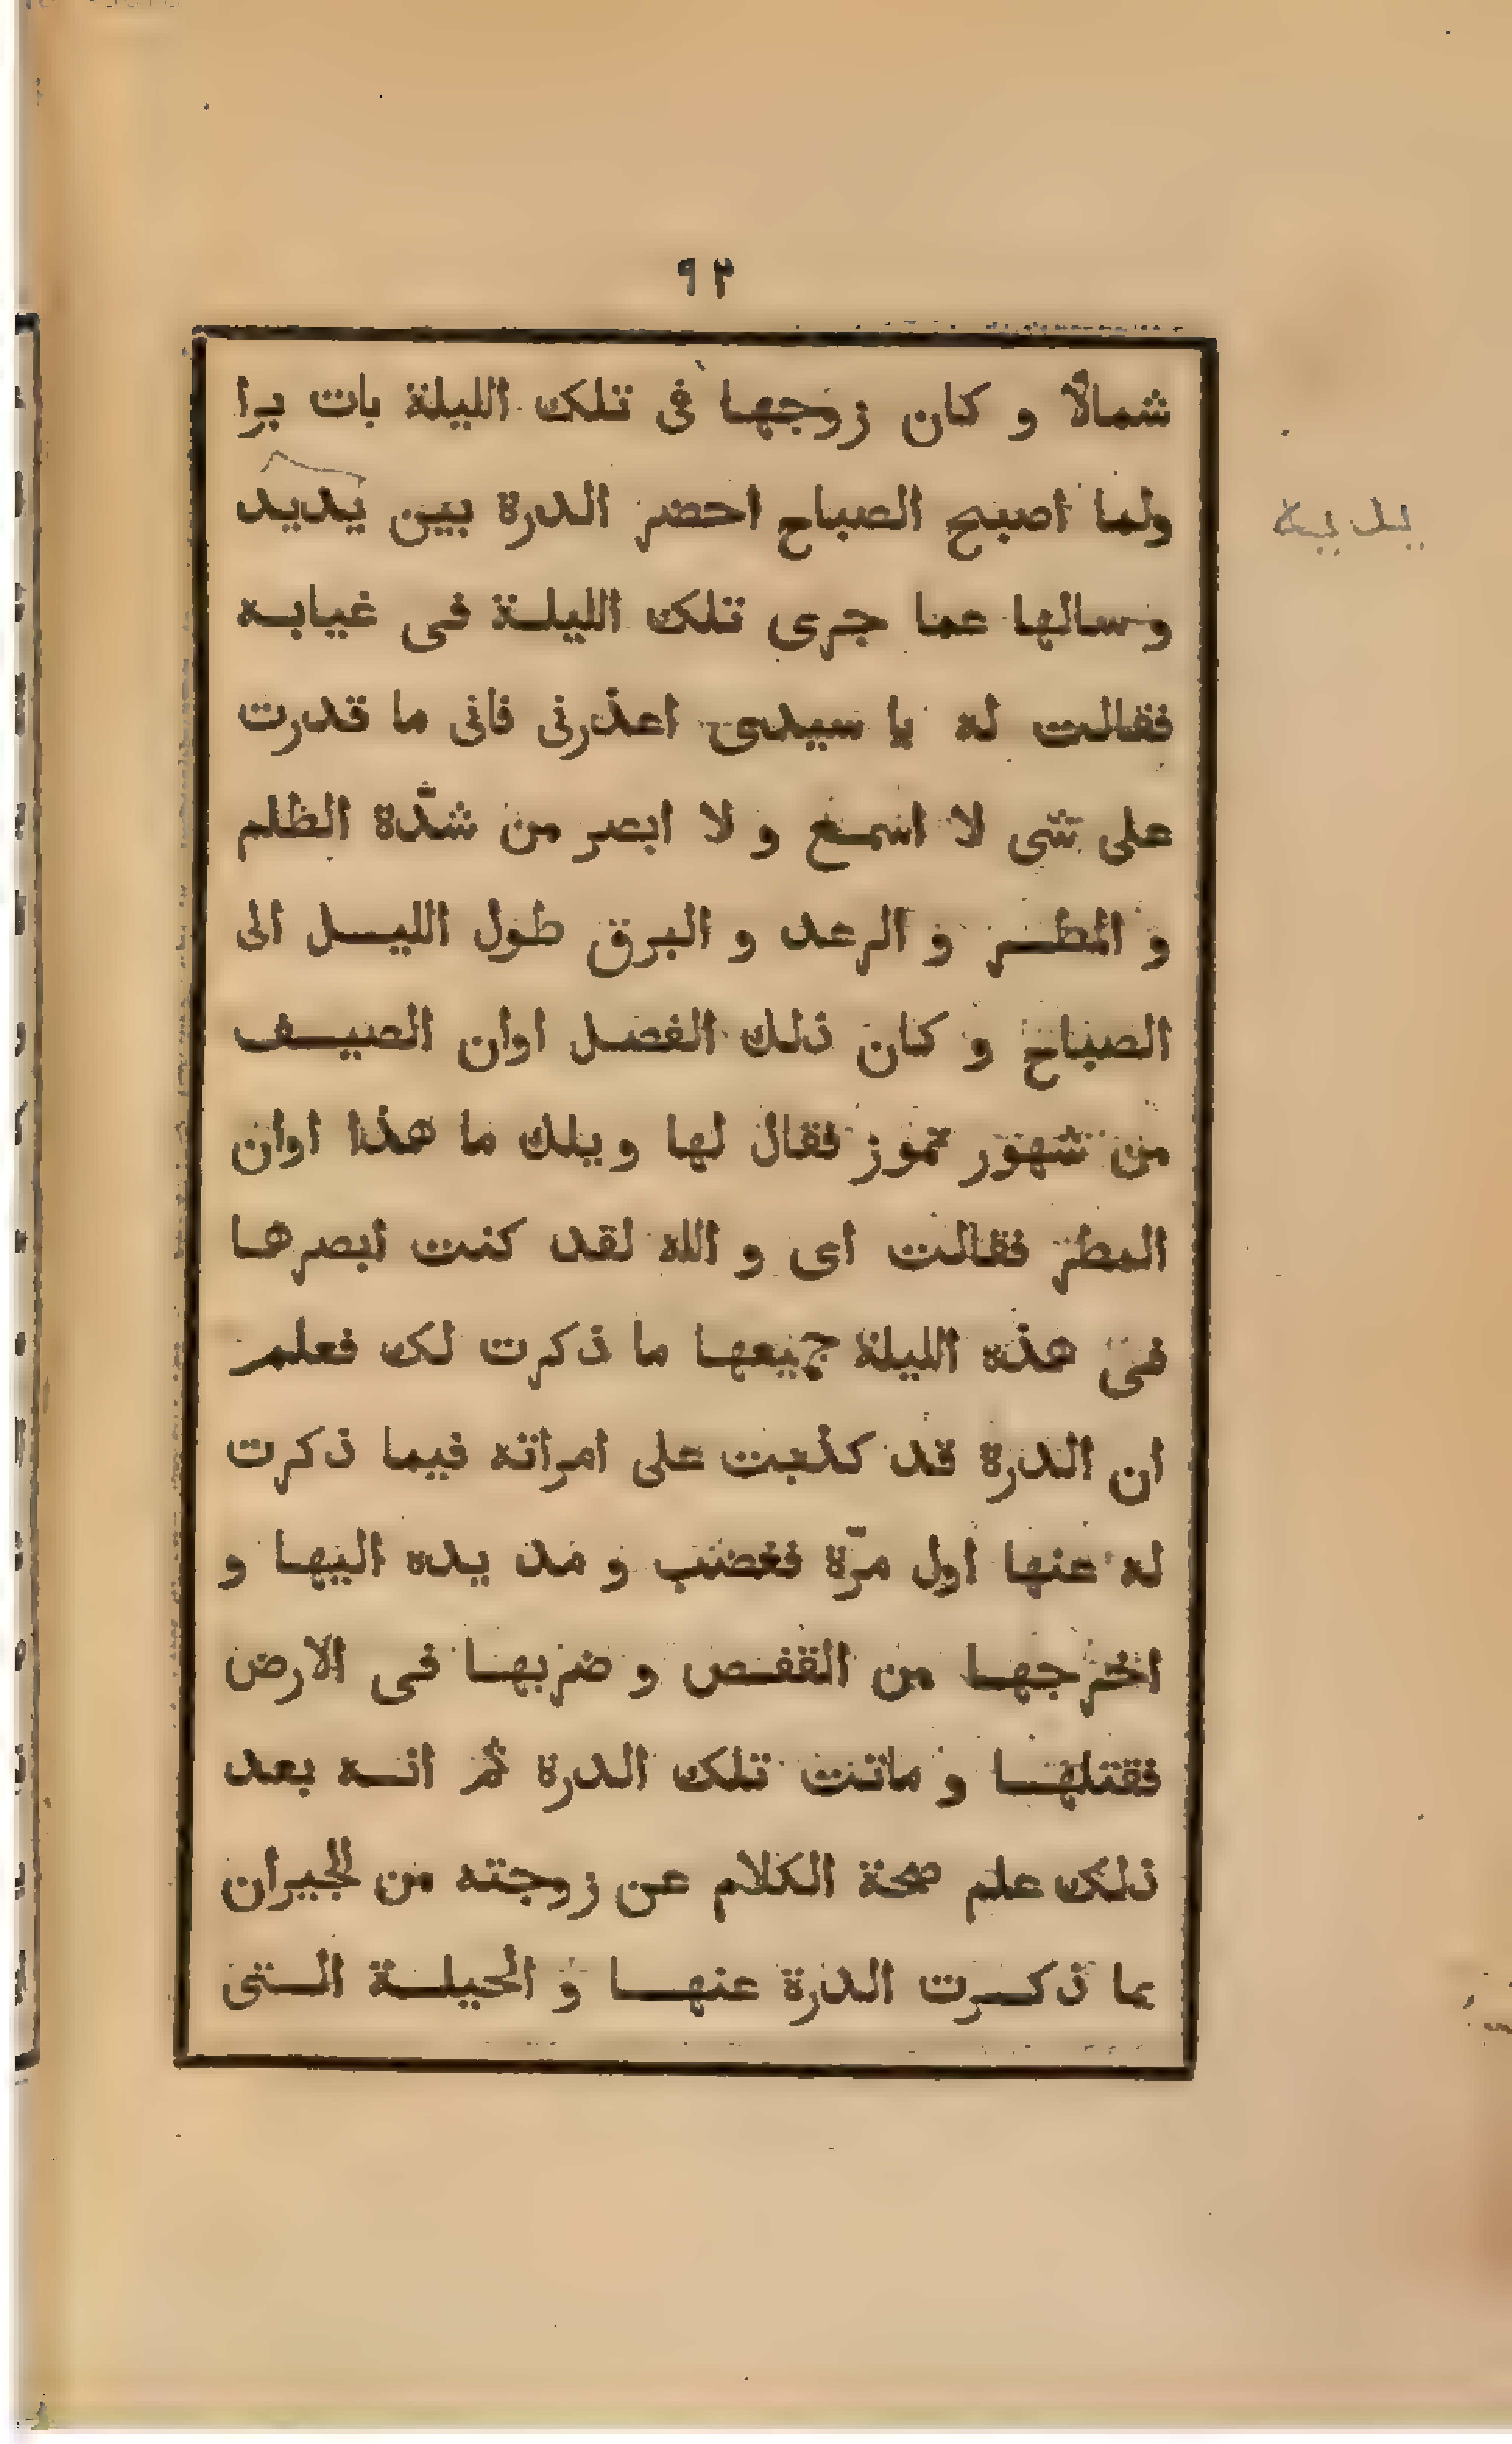 ٩٢
شمالًا و كان زوجها فى تلك الليلة بات برا
ولما اصبح الصباح احضر الدرة بين يديد
يديه
وسالها عما جرى تلك الليلة فى غيابه
فقالت له يا سيدى اعذرنى فانى ما قدرت
على شى لا اسمع و لا ابصر من شدّة الظلم
و المطر و الرعد و البرق طول الليل الى
الصباح و كان ذلك الفصل اوان الصيف
من شهور تموز فقال لها ويلك ما هذا اوان
المطر فقالت اى و الله لقد كنت ابصرها
فى هذه الليلة جميعها ما ذكرت لك فعلم
ان الدرة قد كذبت على امراته فيما ذكرت
له عنها اول مرّة فغضب و مد يده اليها و
اخرجها من القفص و ضربها فى الارض
فقتلها و ماتت تلك الدرة ثم انه بعد
ذلك علم صحة الكلام عن زوجته من الجيران
بما ذكرت الدرة عنها و الحيلة التى